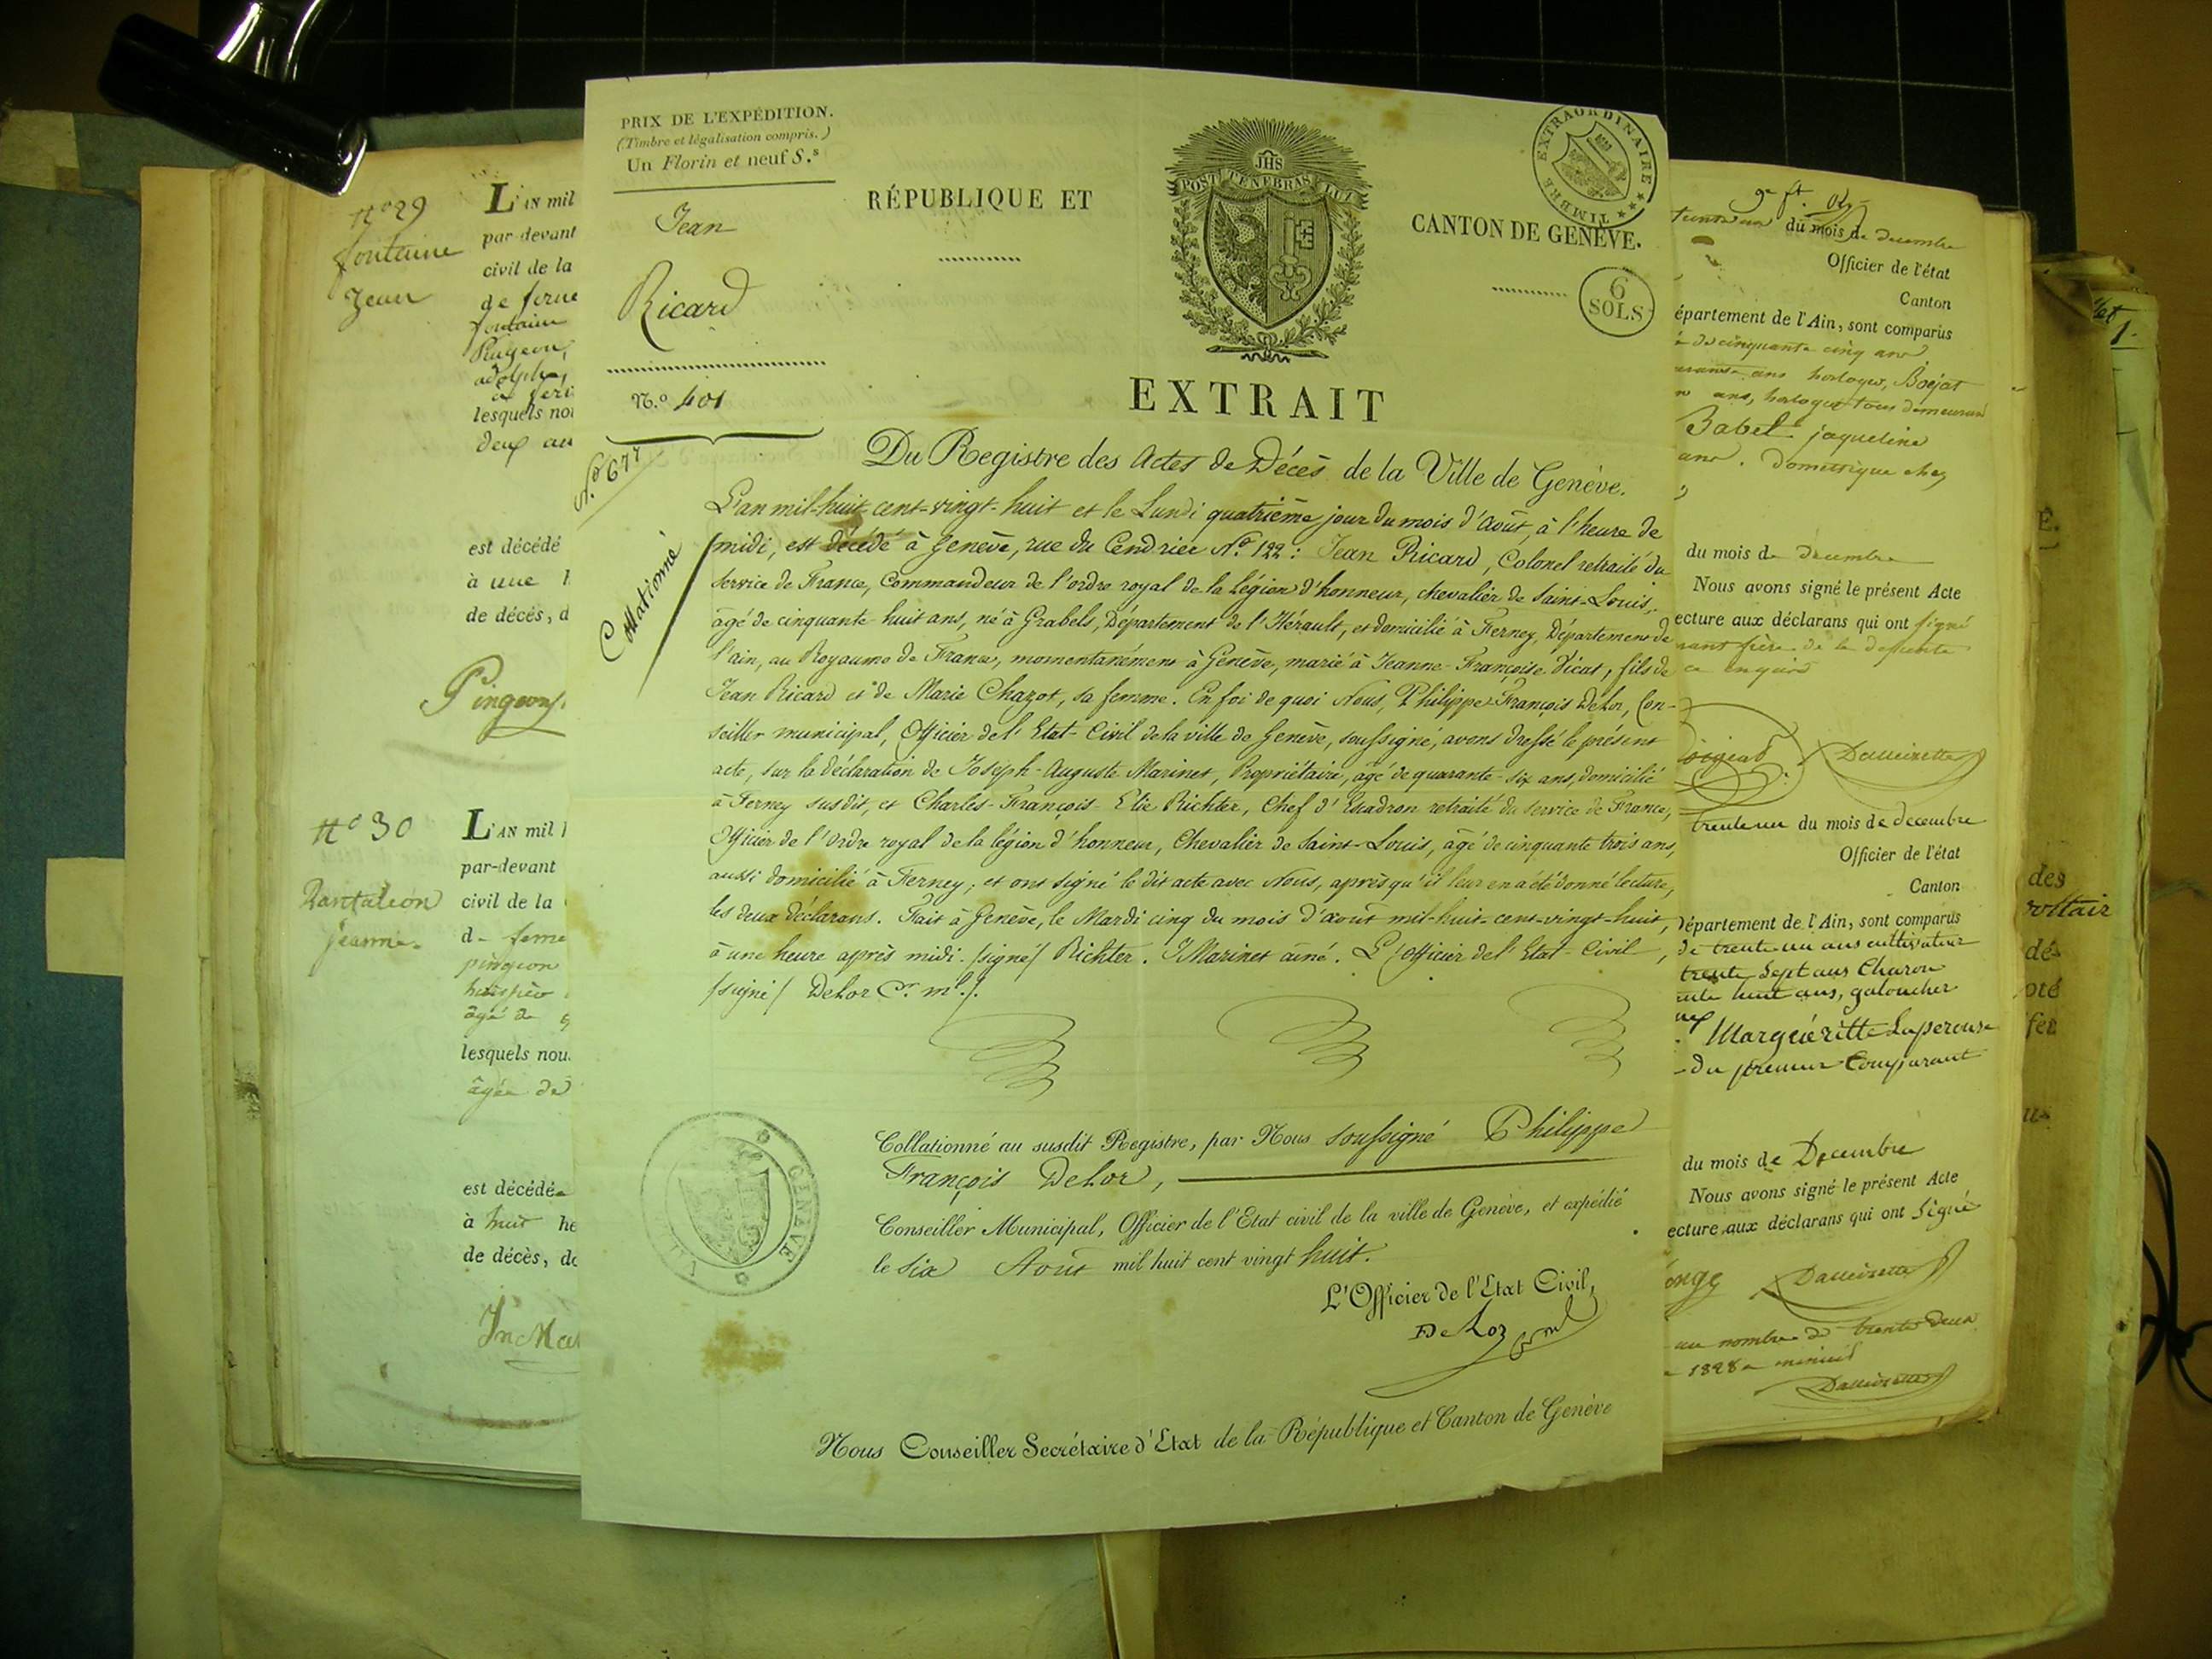 PRIX DE L'EXPÉDITION.
(Timbre et légalisation compris.)
Un Florin et neuf S.s
Jean
Ricard
N.o 401
N.o 677
Collationné
RÉPUBLIQUE ET
JHS
POST TENEBRAS LUX
CANTON DE GENÈVE.
TIMBRE EXTRAORDINAIRE
6
SOLS
EXTRAIT
Du Registre des Actes de Décès de la Ville de Genève.
L'an mil-huit-cent-vingt-huit et le Lundi quatrième jour du mois d'Août, à l'heure de
midi, est décédé à Genève, rue du Cendrier No. 122: Jean Ricard, Colonel retraité du
service de France, Commandeur de l'ordre royal de la légion d'honneur, chevalier de Saint-Louis,
âgé de cinquante-huit ans, né à Grabels, Département de l'Hérault, et domicilié à Ferney, Département de
l'ain, au Royaume de France, momentanément à Genève, marié à Jeanne-Françoise Vicat, fils de
Jean Ricard et de Marie Chazot, sa femme. En foi de quoi Nous, Philippe-François DeLor, Con-
seiller municipal, Officier de l'Etat-Civil de la ville de Genève, soussigné, avons dressé le présent
acte, sur la déclaration de Joseph-Auguste Marinet, Propriétaire, âgé de quarante-six ans, domicilié
à Ferney susdit, et Charles-François-Elie Richter, Chef d'Escadron retraité du service de France,
Officier de l'ordre royal de la légion d'honneur, Chevalier de Saint-Louis, âgé de cinquante trois ans,
aussi domicilié à Ferney; et ont signé le dit acte avec Nous, après qu'il leur en a été donné lecture,
les deux déclarans. Fait à Genève, le Mardi cinq du mois d'août mil-huit-cent-vingt-huit,
à une heure après midi. /signé/ Richter. J Marinet ainé. L'Officier de l'Etat-Civil,
/signé/ DeLor Cr. ml./.
Collationné au susdit Registre, par Nous soussigné Philippe
François DeLor,
Conseiller Municipal, Officier de l'Etat civil de la ville de Genève, et expédié
le six Août mil huit cent vingt huit.
L'Officier de l'Etat Civil,
DeLor
GENÈVE
Nous Conseiller Secrétaire d'Etat de la République et Canton de Genève
No 29
fontaine
Jean
L'AN mil
par-devant
civil de la
de ferne
fontaine
Pingeon,
adolphe,
à ferne
lesquels nou
deux au
est décédé
à une h
de décés, d
Pingeon
No 30
Pantaléon
jeanne.
L'AN mil
par-devant
civil de la
de ferne
pingeon
âgé de
lesquels nou
âgée de
est décédée
à huit he
de décès, do
du mois de decembre
Officier de l'état
Canton
épartement de l'Ain, sont comparus
de cinquante cinq ans
ans horloger, Bosjat
ans, horloger tous demeurant
Babel jaqueline
ans. Domestique chez
du mois de decembre
Nous avons signé le présent Acte
ecture aux déclarans qui ont signé
frère de la defunte
ce enquis
trente un du mois de decembre
Officier de l'état
Canton
département de l'Ain, sont comparus
de trente un ans cultivateur
trente sept ans Charon
huit ans, galocher
Margueritte Laperouse
du premier Comparant
du mois de Decembre
Nous avons signé le présent Acte
ecture aux déclarans qui ont Signé
au nombre de trente deux
1828 a minuit
des
voltair
dé-